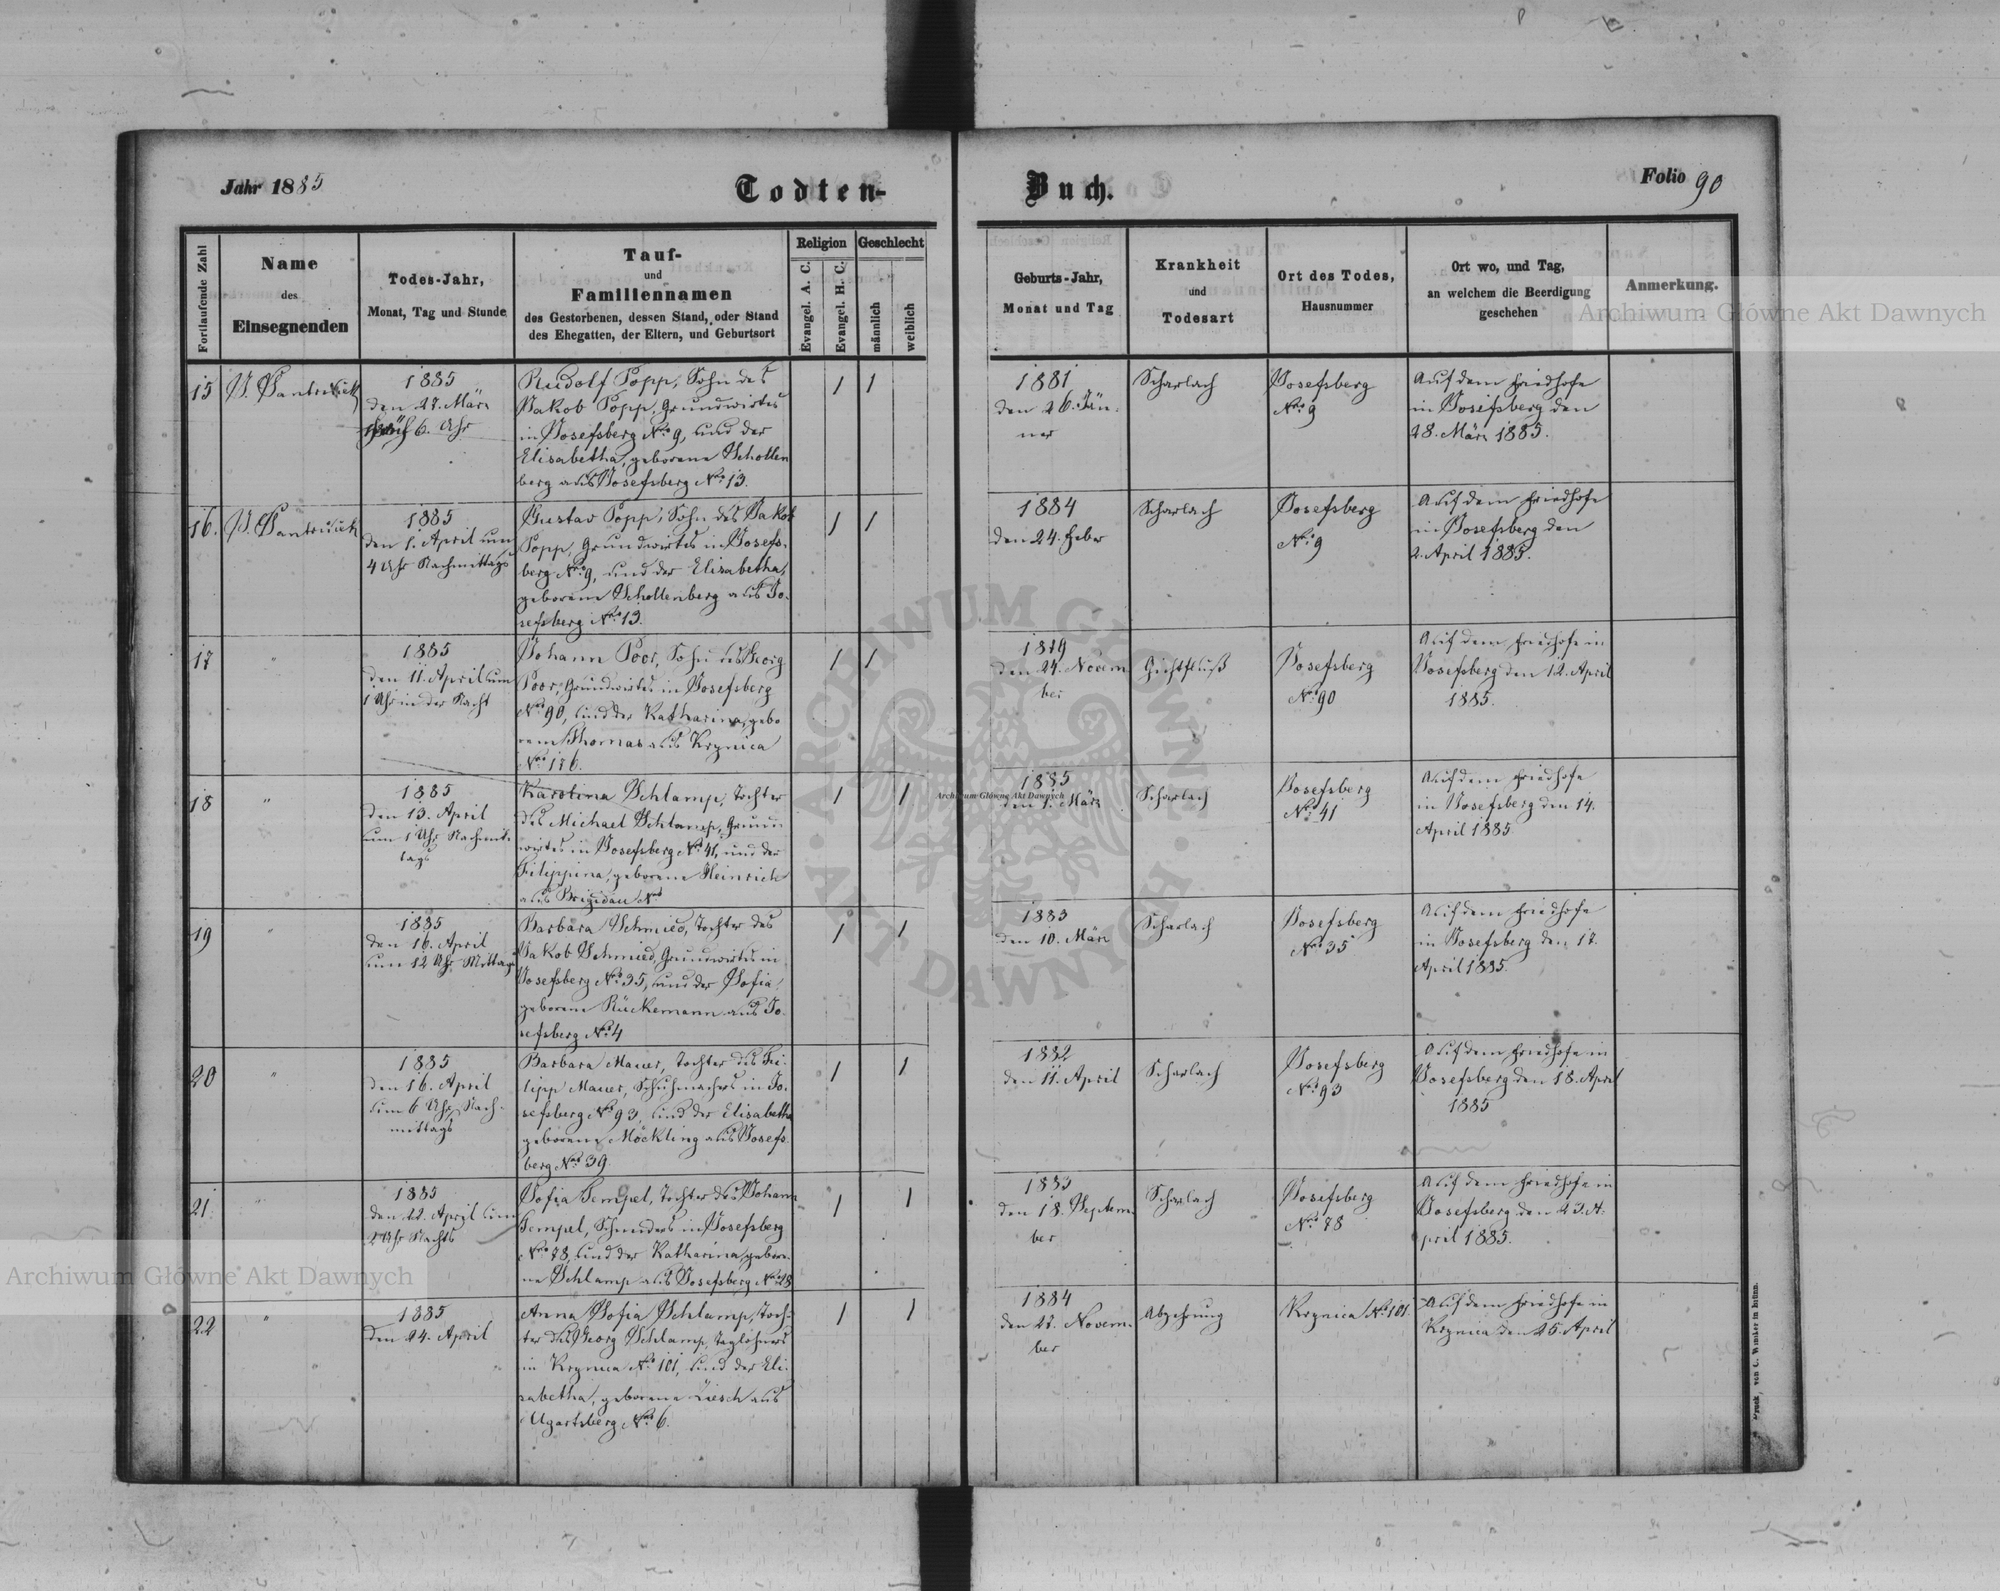 Jahr 1885
Todten-
Buch.
Folio 90
Fortlaufende Zahl
Name
des
Einsegnenden
Todes-Jahr,
Monat, Tag und Stunde
Tauf-
und
Familiennamen
des Gestorbenen, dessen Stand, oder Stand
des Ehegatten, der Eltern, und Geburtsort
Religion
Evangel. A. C.
Evangel. H. C.
Geschlecht
männlich
weiblich
Geburts-Jahr,
Monat und Tag
Krankheit
und
Todesart
Ort des Todes,
Hausnummer
Ort wo, und Tag,
an welchem die Beerdigung
geschehen
Anmerkung.
15
1885
den 27. März
6. Uhr
Rudolf Popp, Sohn des
Jakob Popp, Grundwirtes
in Josefsberg Nro 9, und der
Elisabetha, geborene Schollen
berg aus Josefsberg Nro 13.
1 1
1881
den 26. Jän-
ner
Scharlach
Josefsberg
Nro 9
Auf dem Friedhofe
in Josefsberg den
28. März 1885.
16.
1885
den 1. April um
4 Uhr Nachmittags
Gustav Popp, Sohn des Jakob
Popp, Grundwirtes in Josefs-
berg Nro 9, und der Elisabetha,
geborene Schollenberg aus Jo-
sefsberg Nro 13.
1 1
1884
den 24. Feber
Scharlach
Josefsberg
Nro 9
Auf dem Friedhofe
in Josefsberg den
2. April 1885.
17
"
1885
den 11. April um
1 Uhr in der Nacht
Johann Poor, Sohn des Georg
Poor, Grundwirtes in Josefsberg
Nro 90, und der Katharina, gebo
rene Thomas aus Krynica
Nro 176.
1 1
den 24. Novem
ber
Gichtfluß
Josefsberg
Nro 90
Auf dem Friedhofe in
Josefsberg den 12. April
1885.
18
"
1885
den 13. April
um 1 Uhr Nachmit-
tags
Karolina Schlamp, Tochter
des Michael Schlamp, Grund
wirtes in Josefsberg No 41, und der
Filippina, geborene Heinrich
aus Brigidau No
1 1
1885
den 1. März
Scharlach
Josefsberg
No 41
Auf dem Friedhofe
in Josefsberg den 14.
April 1885.
19
"
1885
den 16. April
um 12 Uhr Mittags
Barbara Schmied, Tochter des
Jakob Schmied, Grundwirtes in
Josefsberg No 35, und der Sofia,
geborene Rückemann aus Jo-
sefsberg No 4
1 1
1883
den 10. März
Scharlach
Josefsberg
No 35
Auf dem Friedhofe
in Josefsberg den 17.
April 1885.
20
"
1885
den 16. April
um 6 Uhr Nach-
mittags
Barbara Mauer, Tochter des Fi-
lipp Mauer, Schuhmachers in Jo-
sefsberg No 93, und der Elisabetha
geborene Möckling aus Josefs-
berg Nro 39.
1 1
1882
den 11. April
Scharlach
Josefsberg
No 93
Auf dem Friedhofe in
Josefsberg den 18. April
1885
21.
"
1885
den 22. April um
2 Uhr Nachts
Sofia Gempel, Tochter des Johann
Gempel, Schneiders in Josefsberg
Nro 78, und der Katharina, gebore-
ne Schlamp aus Josefsberg No 28
1 1
1883
den 18. Septem-
ber
Scharlach
Josefsberg
No 78
Auf dem Friedhofe in
Josefsberg den 23. A-
pril 1885.
22
"
1885
den 24. April
Anna Sofia Schlamp, Toch-
ter des Georg Schlamp, Taglöhners
in Krynica No 101, und der Eli-
sabetha, geborene Liesch aus
Ugartsberg Nro 6.
1 1
1884
den 22. Novem-
ber
Abzehrung
Krynica No 101.
Auf dem Friedhofe in
Krynica den 25. April
Archiwum Główne Akt Dawnych
Archiwum Główne Akt Dawnych
Archiwum Główne Akt Dawnych
ARCHIWUM GŁÓWNE AKT DAWNYCH